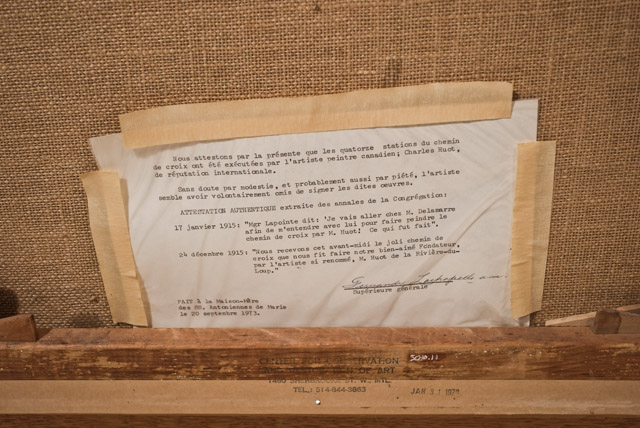 Nous attestons par la présente que les quatorze stations du chemin
de croix ont été exécutées par l'artiste peintre canadien; Charles Huot,
de réputation internationale.
Sans doute par modestie, et probablement aussi par piété, l'artiste
semble avoir volontairement omis de signer les dites oeuvres.
ATTESTATION AUTHENTIQUE extraite des annales de la Congrégation:
17 janvier 1915: "Mgr Lapointe dit: 'Je vais aller chez M. Delamarre
afin de m'entendre avec lui pour faire peindre le
chemin de croix par M. Huot! Ce qui fut fait".
24 décembre 1915: "Nous recevons cet avant-midi le joli chemin de
croix que nous fit faire notre bien-aimé Fondateur,
par l'artiste si renommé, M. Huot de la Rivière-du-
Loup."
Supérieure générale
FAIT à la Maison-Mère
des SS. Antoniennes de Marie
le 20 septembre 1973.
OF ART
1460 SHERBROOKE ST. W. MTL.
TEL.: 514-844-3863
JAN 31 1978